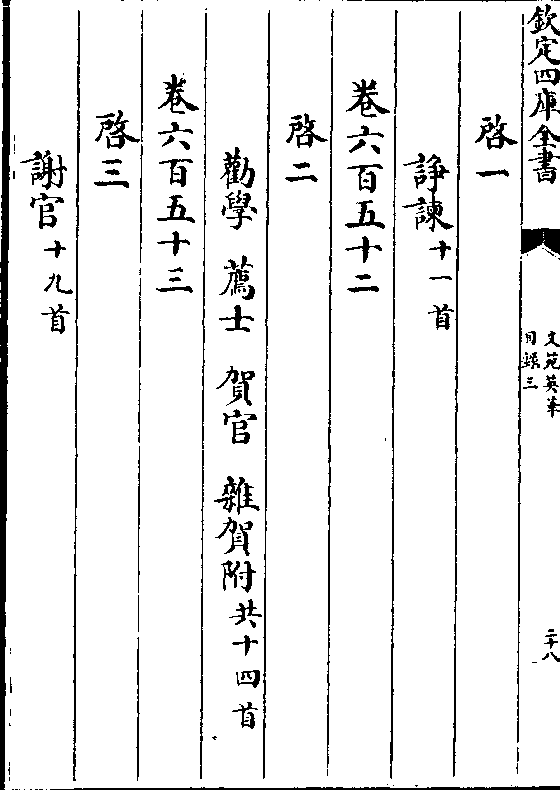 欽定四庫全書
文苑英華
目錄三
二十八
啓一
諍諫十一首
卷六百五十二
啓二
勸學 薦士 賀官 雜賀附共十四首
卷六百五十三
啓三
謝官十九首